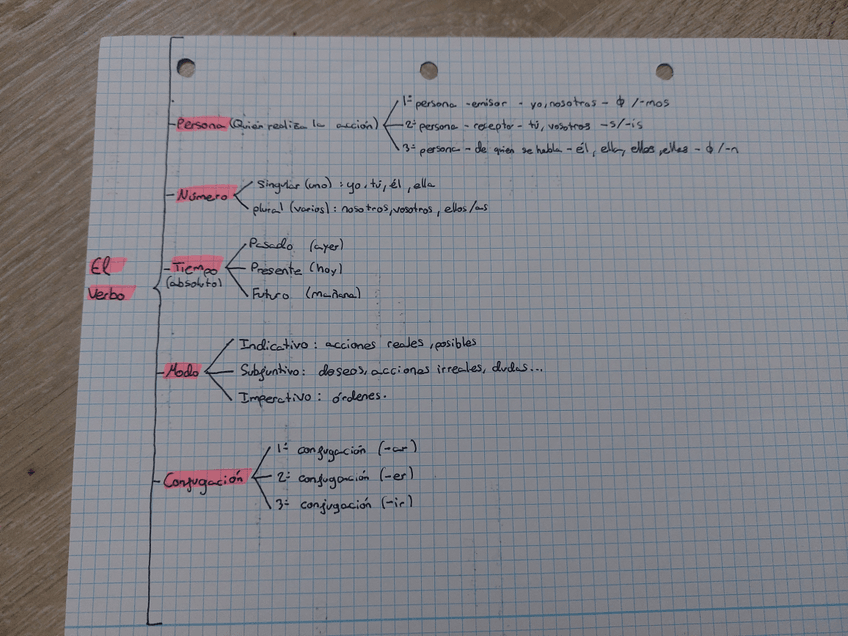 1ª persona - emisor - yo, nosotros - ϕ /-mos
Persona (Quien realiza la acción)
2ª persona - receptor - tú, vosotros - s/-is
3ª persona - de quien se habla - él, ella, ellos, ellas - ϕ /-n
Número
singular (uno) : yo, tú, él, ella
plural (varios) : nosotros, vosotros, ellos/as
El
Verbo
Tiempo
(absoluto)
Pasado (ayer)
Presente (hoy)
Futuro (mañana)
Modo
Indicativo : acciones reales, posibles
Subjuntivo : deseos, acciones irreales, dudas...
Imperativo : órdenes.
Conjugación
1ª conjugación (-ar)
2ª conjugación (-er)
3ª conjugación (-ir)